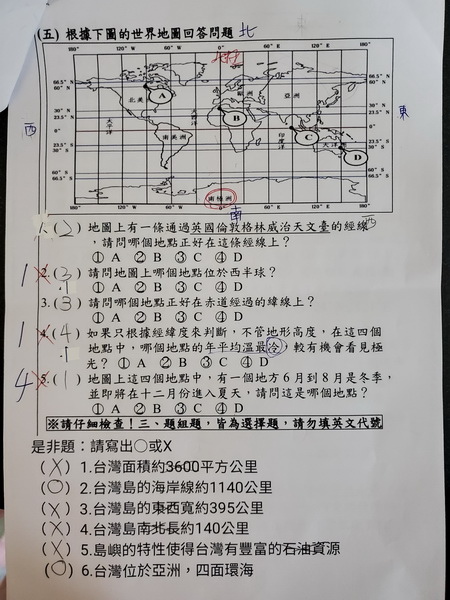 (五) 根據下圖的世界地圖回答問題 北
180° 120° W 60° W 0° 60° E 120° E 180°
66.5° N 66.5° N
北美 歐洲 亞洲
A
30° N 30° N
西 23.5° N B 23.5° N 東
太平洋 大西洋
0° 0°
南美洲 印度洋 C
23.5° S 大洋洲 23.5° S
30° S D 30° S
66.5° S 66.5° S
南極洲
180° 120° W 60° W 0° 60° E 120° E 180°
南
1.(2) 地圖上有一條通過英國倫敦格林威治天文臺的經線 西
，請問哪個地點正好在這條經線上？
① A ② B ③ C ④ D
1 2.(3) 請問地圖上哪個地點位於西半球？
.1 ① A ② B ③ C ④ D
3.(3) 請問哪個地點正好在赤道經過的緯線上？
① A ② B ③ C ④ D
1 4.(4) 如果只根據經緯度來判斷，不管地形高度，在這四個
.1 地點中，哪個地點的年平均溫最冷，較有機會看見極
光？ ① A ② B ③ C ④ D
4 5.(1) 地圖上這四個地點中，有一個地方6月到8月是冬季，
並即將在十二月份進入夏天，請問這是哪個地點？
① A ② B ③ C ④ D
※請仔細檢查！三、題組題，皆為選擇題，請勿填英文代號
是非題：請寫出○或X
(X) 1.台灣面積約3600平方公里
(O) 2.台灣島的海岸線約1140公里
(X) 3.台灣島的東西寬約395公里
(X) 4.台灣島南北長約140公里
(X) 5.島嶼的特性使得台灣有豐富的石油資源
(O) 6.台灣位於亞洲，四面環海